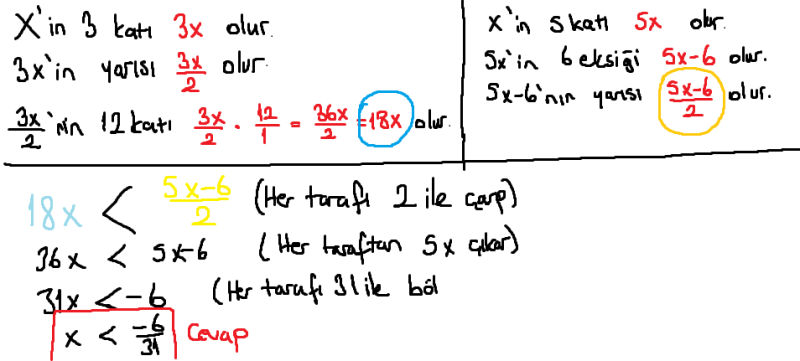 X'in 3 katı 3x olur.
3x'in yarısı 3x/2 olur.
3x/2'nin 12 katı 3x/2 . 12/1 = 36x/2 = 18x olur.
x'in 5 katı 5x olur.
5x'in 6 eksiği 5x-6 olur.
5x-6'nın yarısı 5x-6/2 olur.
18x < 5x-6/2 (Her tarafı 2 ile çarp)
36x < 5x-6 (Her taraftan 5x çıkar)
31x < -6 (Her tarafı 31 ile böl
x < -6/31 Cevap